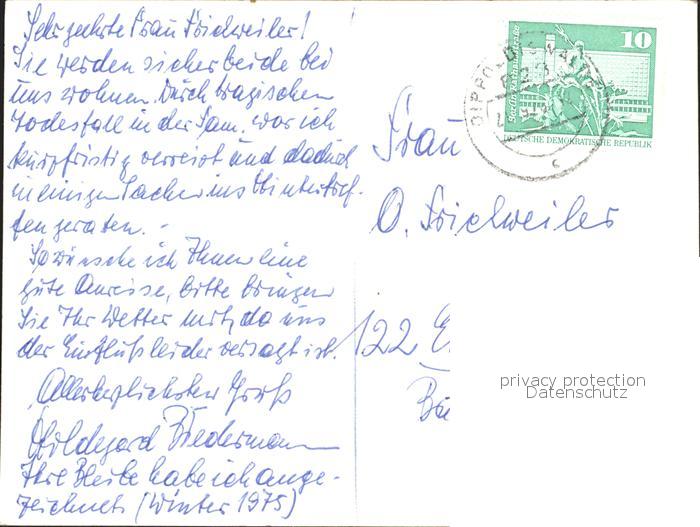 Sehr geehrte Frau Fridweiler!
Sie werden sicher beide bei
uns wohnen. Durch tragischen
Todesfall in der Fam. war ich
kurzfristig verreist und dadurch
in einigen Sachen ins Hintertref-
fen geraten. -
So wünsche ich Ihnen eine
gute Anreise, bitte bringen
Sie Ihr Wetter mit, da uns
der Einfluß leider versagt ist.
Allerherzlichsten Gruß
Hildegard Biedermann
Ihre Bleibe habe ich ange-
zeichnet (Winter 1975)
10
Berlin Leipziger Straße
DEUTSCHE DEMOKRATISCHE REPUBLIK
Frau
O. Fridweiler
122 E
privacy protection
Datenschutz